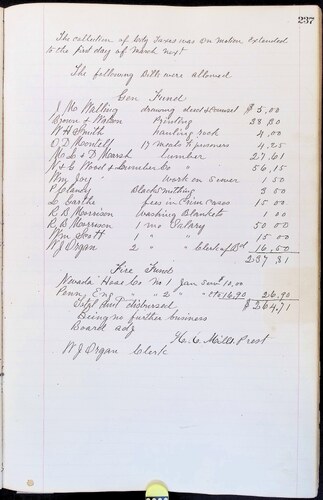 237
The collection of City Taxes was on motion extended
to the first day of March next
The following Bills were allowed
Gen Fund
J M Walling drawing deed & council $ 5.00
Brown & Watson Printing 28.80
W H Smith hauling rock 4.00
O D Mondell 17 meals to prisoners 4.25
M L & D Marsh lumber 27.61
N & C Wood & Lumber Co " 56,15
Wm Joy work on sewer 1 50
P Clancy Blacksmithing 3 00
L Garthe fees in Crim cases 15 00
R B Morrison Washing Blankets 1 00
R B Morrison 1 mo Salary 50 00
Wm Scott 1 " " 15 00
W J Organ 2 " " Clerk of Bd 16,50
237 31
Fire Fund
Nevada Hose Co No 1 Jan 10,00
Penn Eng " " 2 " " 16.90 26.90
disbursed $ 264.71
Being no further business
Board adj
H. C. Mills Prest
W J Organ Clerk